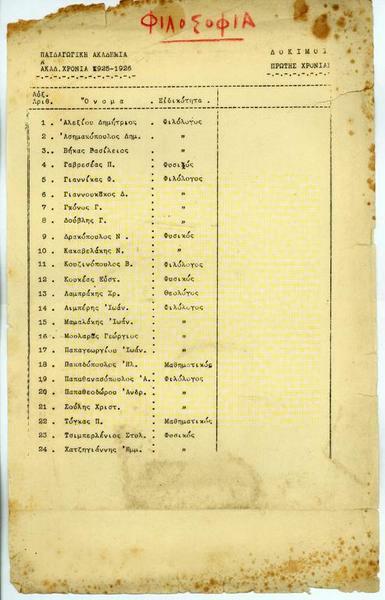 ΦΙΛΟΣΟΦΙΑ
ΠΑΙΔΑΓΩΓΙΚΗ ΑΚΑΔΗΜΙΑ
ΑΚΑΔ.ΧΡΟΝΙΑ 1925-1926
ΔΟΚΙΜΟΙ
ΠΡΩΤΗΣ ΧΡΟΝΙΑΣ
Αὔξ. Ἀριθ. Ὄνομα : Εἰδικότητα :
1. Ἀλεξίου Δημήτριος : Φιλόλογος
2. Ἀσημακόπουλος Δημ. : "
3. Βήκας Βασίλειος : "
4 . Γαβρεσέας Π. : Φυσικός
5 . Γιαννίκας Φ. : Φιλόλογος
6 . Γιαννουκάκος Δ. : "
7 . Γκόνος Γ. : "
8 . Δούβλης Γ. : "
9 . Δρακόπουλος Ν . : Φυσικός
10 . Κακαβελάκης Ν. : "
11 . Κουζινόπουλος Β. : Φιλόλογος
12 . Κουκέας Εὐστ. : Φυσικός
13 . Λαμπράκης Χρ. : Θεολόγος
14 . Λιμπέρης Ἰωάν. : Φιλόλογος
15 . Μαμαλάκης Ἰωάν. : "
16 . Μουλαρᾶς Γεώργιος : "
17 . Παπαγεωργίου Ἰωάν. : "
18 . Παπαδόπουλος Ἠλ. : Μαθηματικός
19 . Παπαθανασόπουλος Ἀ. : Φιλόλογος
20 . Παπαθεοδώρου Ἀνδρ. : "
21 . Σούλης Χριστ. : "
22 . Τόγκας Π. : Μαθηματικός
23 . Τσιμπερλένιος Στυλ. : Φυσικός
24 . Χατζηγιάννης Ἐμμ. : "